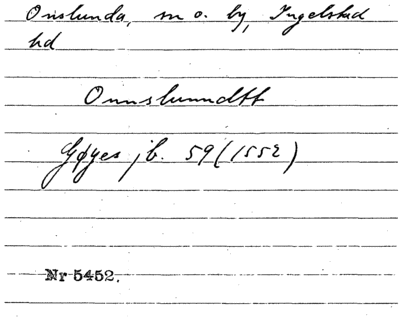 Onslunda, sn o. by, Ingelstad
hd
Onnslunndtt
Gøyes jb. 59 (1552)
Nr 5452.